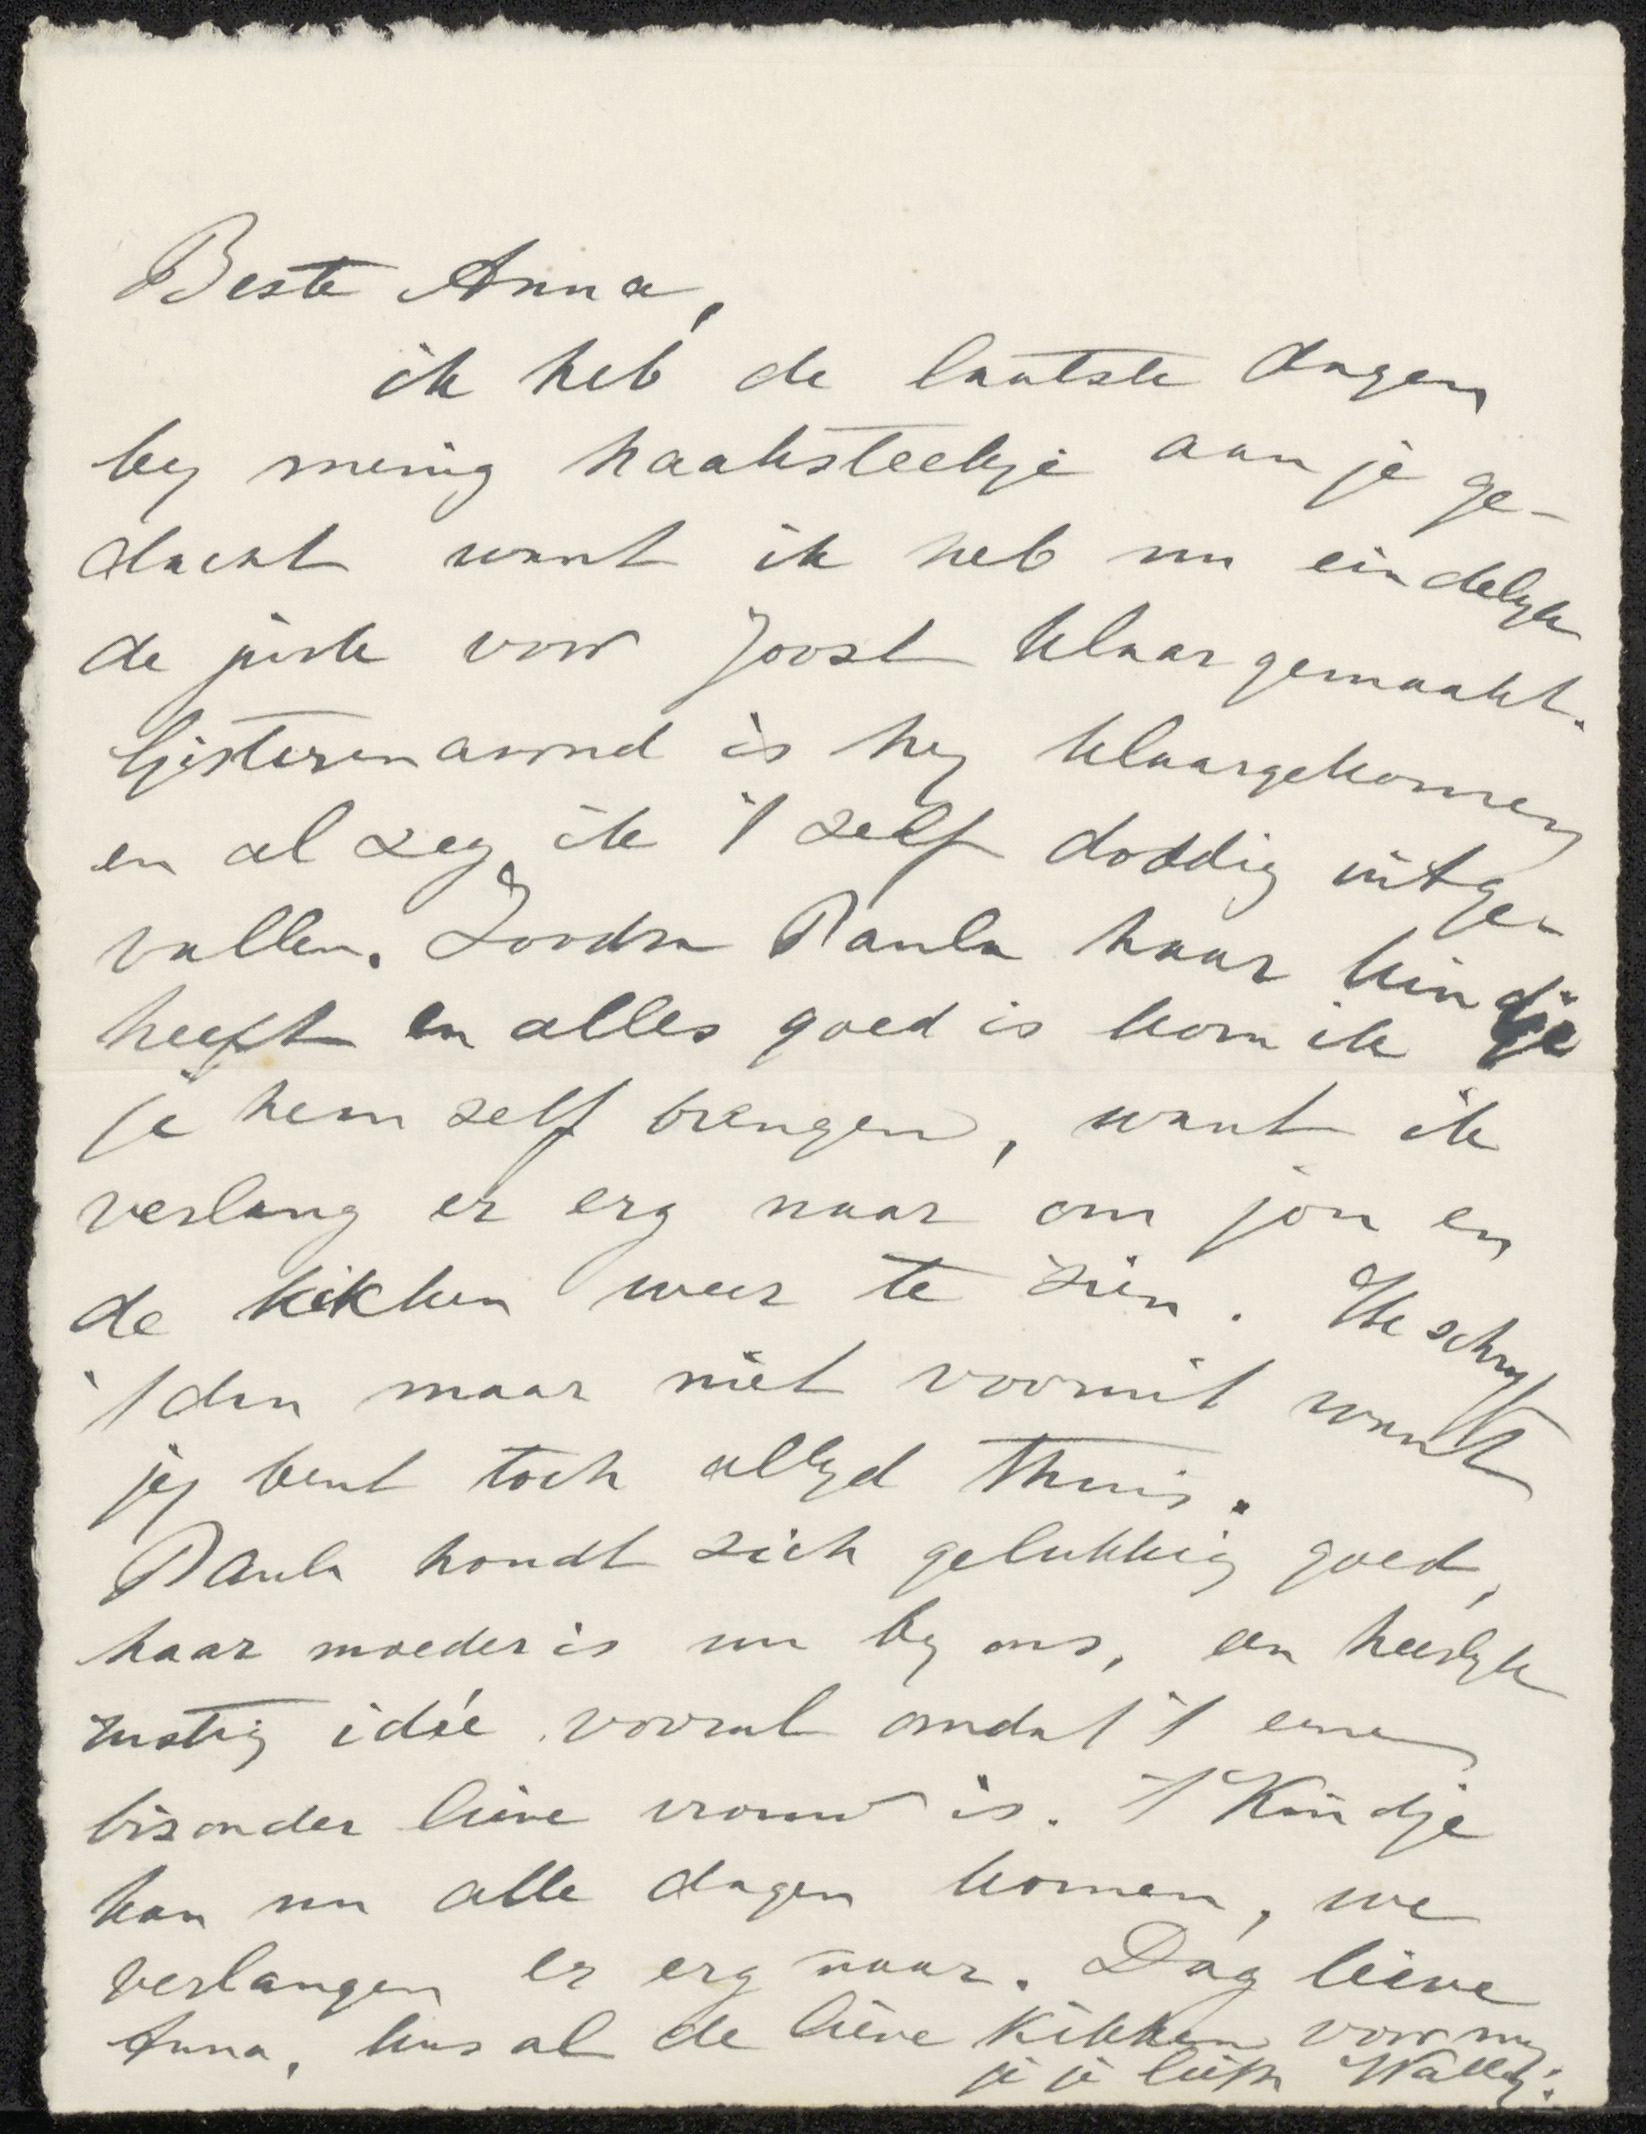 Beste Anna,
ik heb de laatste dagen
by menig haaksteekje aan je ge-
dacht want ik heb nu eindelyk
de jurk voor Joost klaar gemaakt.
Gisterenavond is hy klaargekomen
en al zeg ik 't zelf doddig uitge-
vallen. Zoodra Paula haar kindje
heeft en alles goed is kom ik
je hem zelf brengen, want ik
verlang er erg naar om jou en
de kikken weer te zien. Ik schryf
't dan maar niet vooruit want
jy bent toch altyd thuis.
Paula houdt zich gelukkig goed,
haar moeder is nu by ons, een heerlyk
rustig idée vooral omdat 't een
bizonder lieve vrouw is. 't Kindje
kan nu alle dagen komen, we
verlangen er erg naar. Dag lieve
Anna, kus al de lieve kikken voor my
je je liefh Wally.